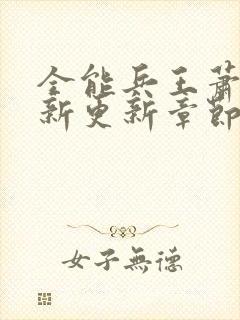 全能兵王蕭
新更新章節
女子無德